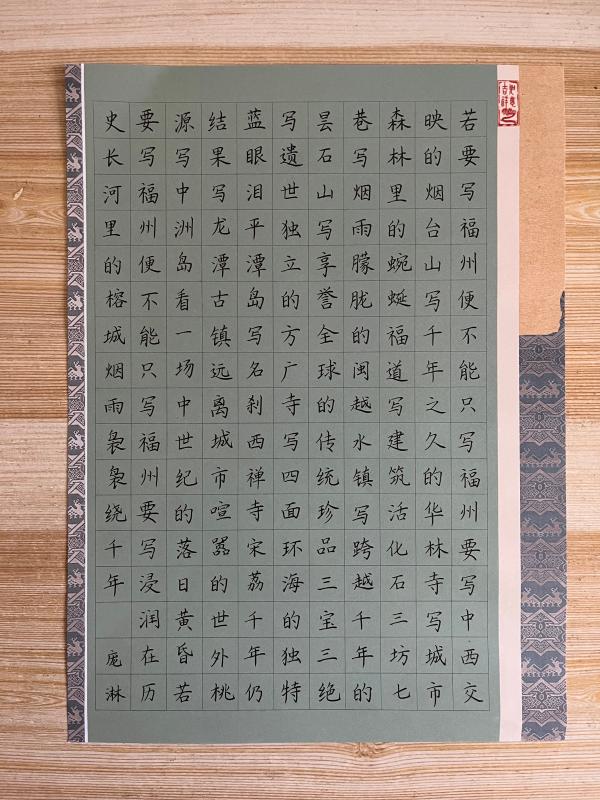 若要写福州便不能只写福州要写中西交
映的烟台山写千年之久的华林寺写城市
森林里的蜿蜒福道写建筑活化石三坊七
巷写烟雨朦胧的闽越水镇写跨越千年的
昙石山写享誉全球的传统珍品三宝三绝
写遗世独立的方广寺写四面环海的独特
蓝眼泪平潭岛写名刹西禅寺宋荔千年仍
结果写龙潭古镇远离城市喧嚣的世外桃
源写中洲岛看一场中世纪的落日黄昏若
要写福州便不能只写福州要写浸润在历
史长河里的榕城烟雨袅袅绕千年 庞淋